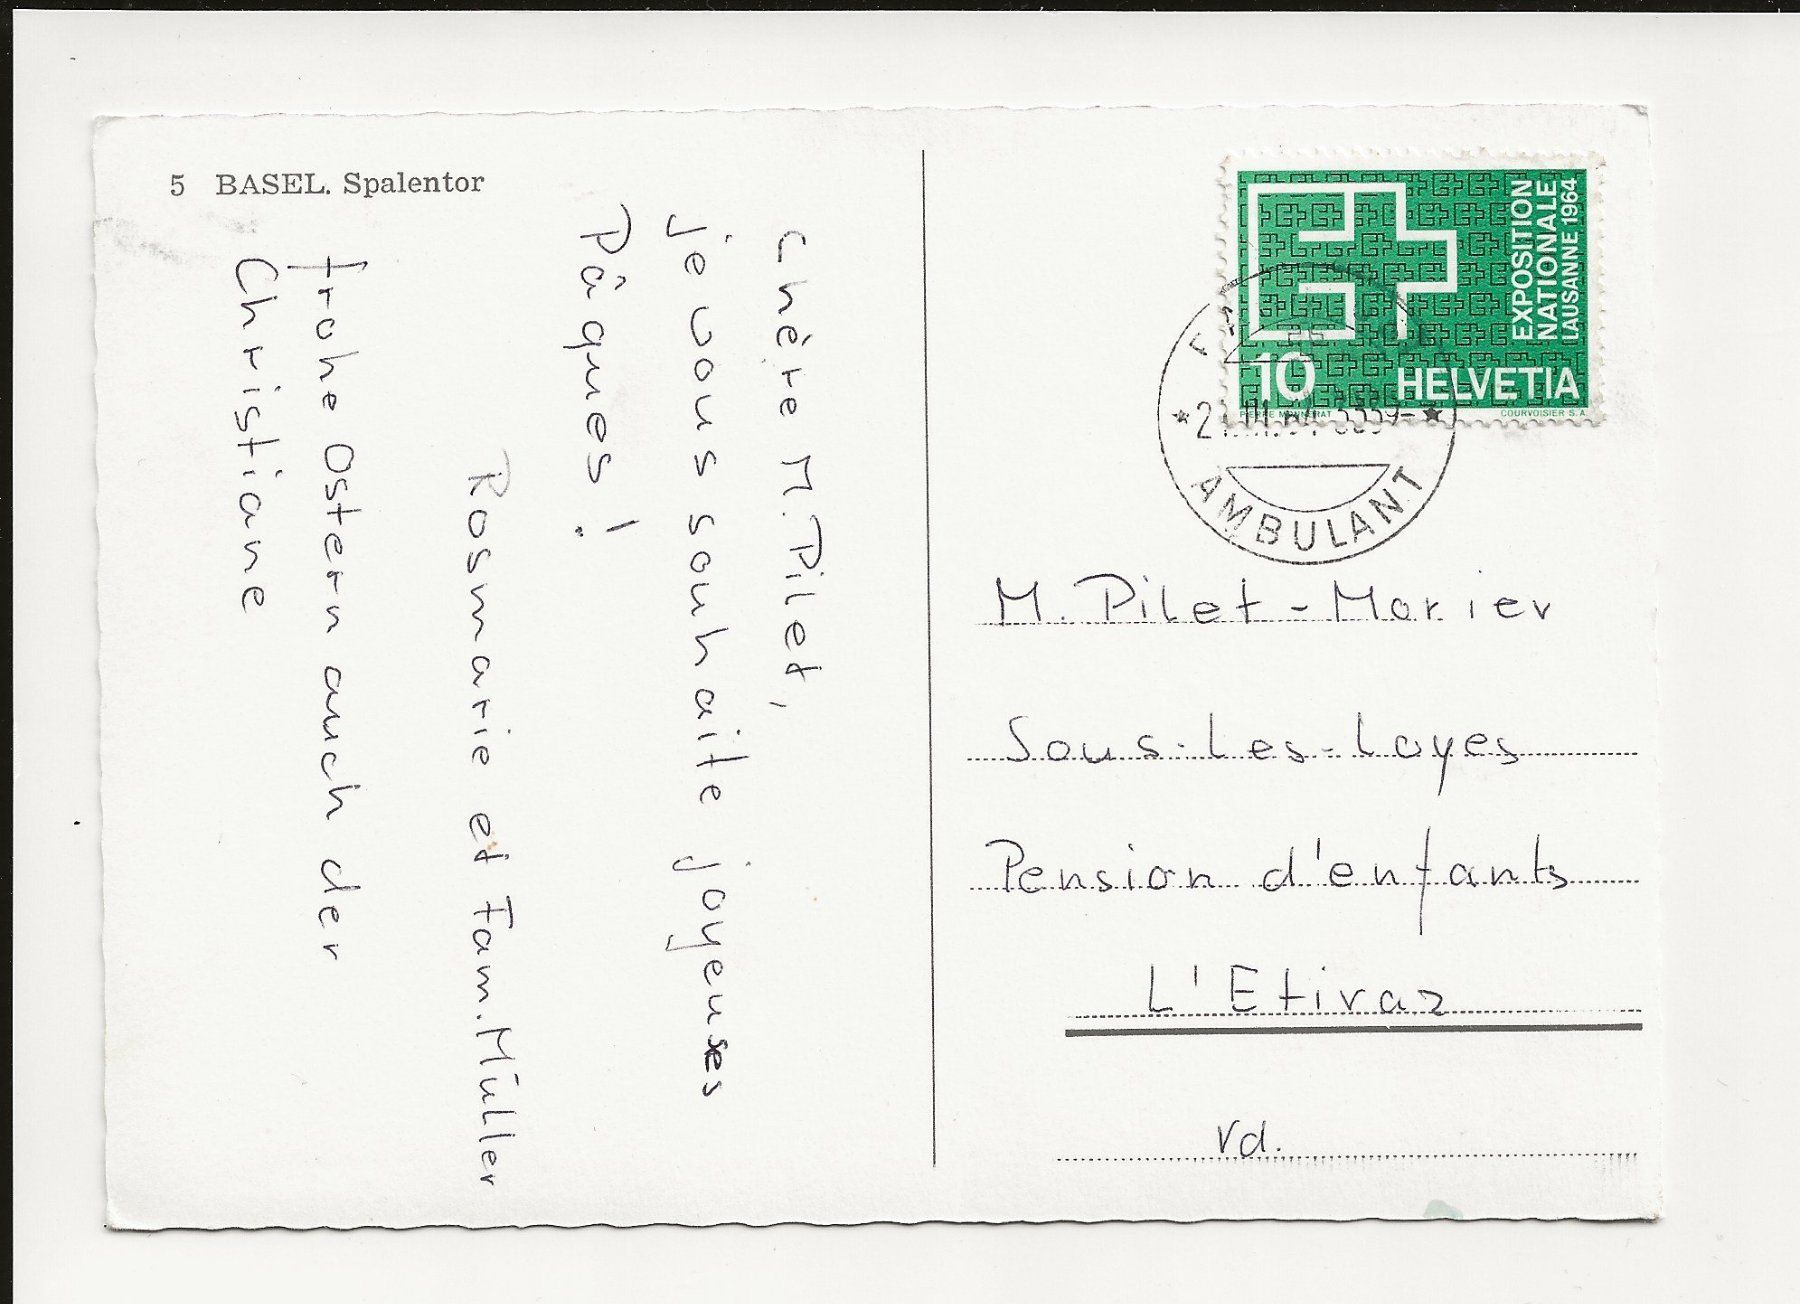 5 BASEL. Spalentor
Chère M. Pilet,
je vous souhaite joyeuses
Pâques!
Rosmarie et Fam. Müller
frohe Ostern auch der
Christiane
EXPOSITION
NATIONALE
LAUSANNE 1964
10 HELVETIA
PIERRE MONNERAT COURVOISIER S.A.
AMBULANT
M. Pilet-Morier
Sous-Les-Layes
Pension d'enfants
L'Etivaz
Vd.